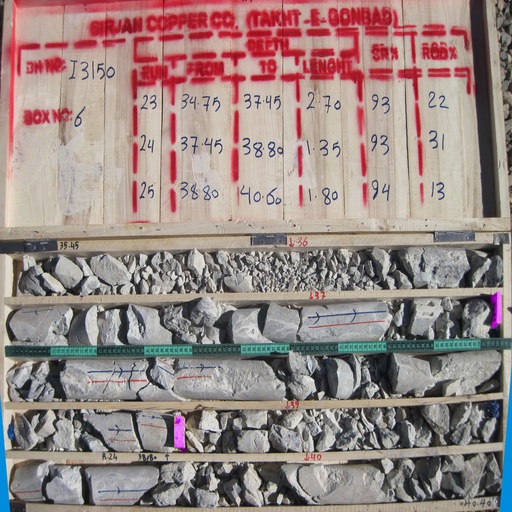 SIRJAN COPPER CO. (TAKHT-E-GONBAD)
DEPTH
BH NO: I3150 RUN FROM TO LENGHT CR% RQD%
23 34.75 37.45 2.70 93 22
BOX NO: 6
24 37.45 38.80 1.35 93 31
25 38.80 40.60 1.80 94 13
35.45 36
37
39
R.24 38/80 ↑ 40
40.40